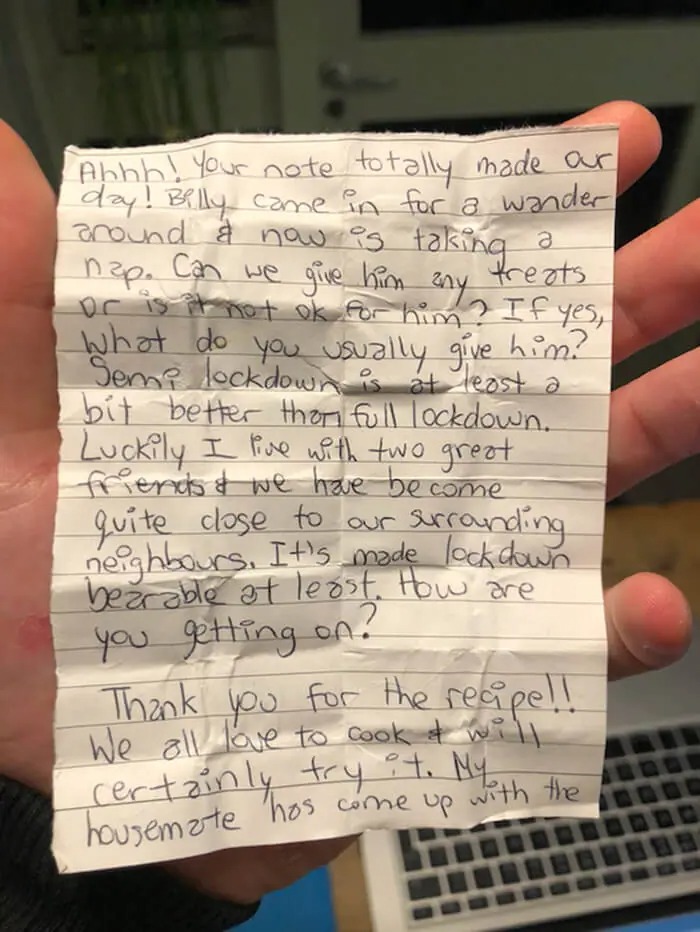 Ahhh! Your note totally made our
day! Billy came in for a wander
around & now is taking a
nap. Can we give him any treats
or is it not ok for him? If yes,
what do you usually give him?
Semi lockdown is at least a
bit better than full lockdown.
Luckily I live with two great
friends & we have become
quite close to our surrounding
neighbours. It's made lockdown
bearable at least. How are
you getting on?
Thank you for the recipe!!
We all love to cook & will
certainly try it. My
housemate has come up with the